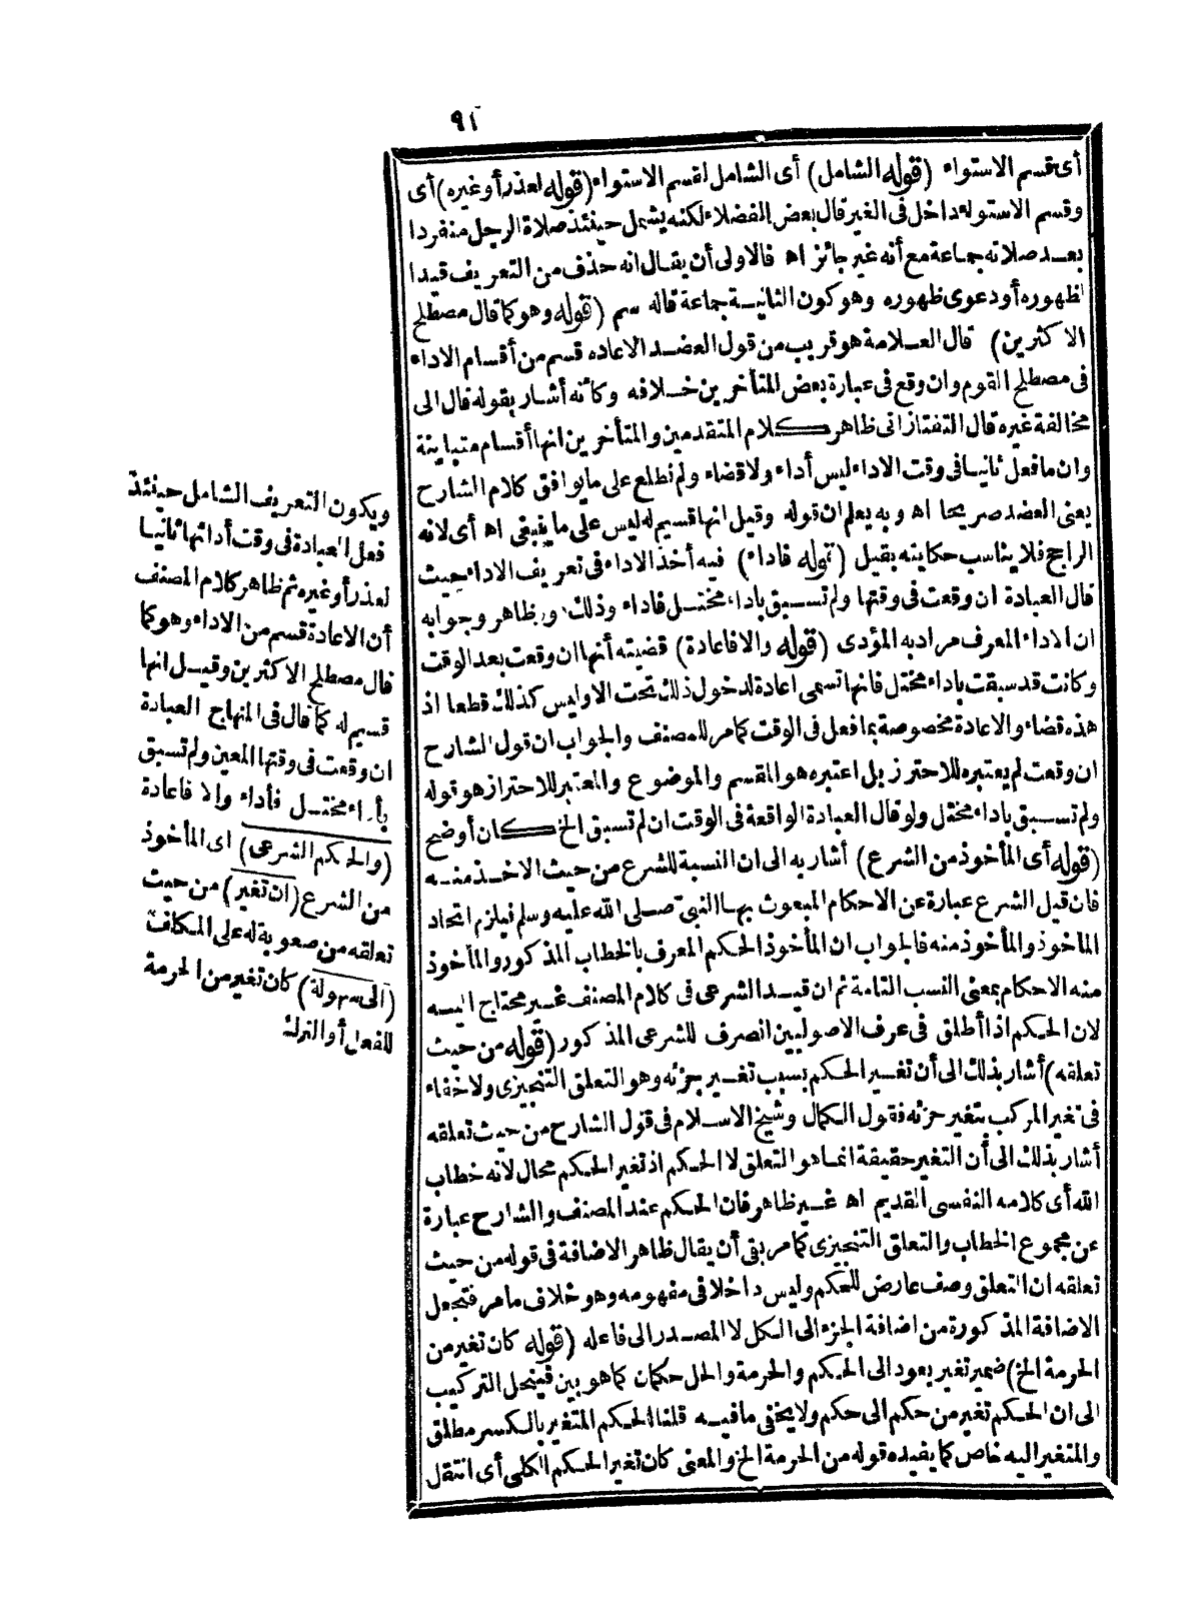 ٩١
أى قسم الاستواء (قوله الشامل) أى الشامل لقسم الاستواء (قوله لعذر أو غيره) أى
وقسم الاستواء داخل فى الغير قال بعض الفضلاء لكنه يشمل حينئذ صلاة الرجل منفردا
بعد صلاته جماعة مع أنه غير جائز اه فالاولى أن يقال انه حذف من التعريف قيدا
لظهوره أو دعوى ظهوره وهو كون الثانية جماعة قاله سم (قوله وهو كما قال مصطلح
الاكثرين) قال العلامة هو قريب من قول العضد الاعاده قسم من أقسام الاداء
فى مصطلح القوم وان وقع فى عبارة بعض المتأخرين خلافه وكأنه أشار بقوله قال الى
مخالفة غيره قال التفتازانى ظاهر كلام المتقدمين والمتأخرين انها أقسام متباينة
وان ما فعل ثانيا فى وقت الاداء ليس أداء ولا قضاء ولم نطلع على ما يوافق كلام الشارح
يعنى العضد صريحا اه وبه يعلم ان قوله وقيل انها قسيم له ليس على ما ينبغى اه أى لانه
الراجح فلا يناسب حكايته بقيل (قوله فاداء) فيه أخذ الاداء فى تعريف الاداء حيث
قال العبادة ان وقعت فى وقتها ولم تسبق باداء مختل فاداء وذلك دور ظاهر وجوابه
ان الاداء المعرف مراد به المؤدى (قوله والا فاعادة) قضيته أنها ان وقعت بعد الوقت
وكانت قد سبقت باداء مختل فانها تسمى اعادة لدخول ذلك تحت الا وليس كذلك قطعا اذ
هذه قضاء والاعادة مخصوصة بما فعل فى الوقت كما مر للمصنف والجواب ان قول الشارح
ان وقعت لم يعتبره للاحترز بل اعتبره هو المقسم والموضوع والمعتبر للاحتراز هو قوله
ولم تسبق باداء مختل ولو قال العبادة الواقعة فى الوقت ان لم تسبق الخ كان أوضح
(قوله أى المأخوذ من الشرع) أشار به الى ان النسبة للشرع من حيث الاخذ منه
فان قيل الشرع عبارة عن الاحكام المبعوث بها النبى صلى الله عليه وسلم فيلزم اتحاد
الماخوذ والمأخوذ منه فالجواب ان المأخوذ الحكم المعرف بالخطاب المذكور والمأخوذ
منه الاحكام بمعنى النسب التامة ثم ان قيد الشرعى فى كلام المصنف غير محتاج اليه
لان الحكم اذا أطلق فى عرف الاصوليين انصرف للشرعى المذكور (قوله من حيث
تعلقه) أشار بذلك الى أن تغير الحكم بسبب تغير جزئه وهو التعلق التنجيزى ولا خفاء
فى تغير المركب بتغير جزئه فقول الكمال وشيخ الاسلام فى قول الشارح من حيث تعلقه
أشار بذلك الى أن التغير حقيقة انما هو التعلق لا الحكم اذ تغير الحكم محال لانه خطاب
الله أى كلامه النفسى القديم اه غير ظاهر فان الحكم عند المصنف والشارح عبارة
عن مجموع الخطاب والتعلق التنجيزى كما مر بقى أن يقال ظاهر الاضافة فى قوله من حيث
تعلقه ان التعلق وصف عارض للحكم وليس داخلا فى مفهومه وهو خلاف ما مر فتجعل
الاضافة المذكورة من اضافة الجزء الى الكل لا المصدر الى فاعله (قوله كان تغير من
الحرمة الخ) ضمير تغير يعود الى الحكم والحرمة والحل حكمان كما هو بين فينحل التركيب
الى ان الحكم تغير من حكم الى حكم ولا يخفى ما فيه قلنا الحكم المتغير بالكسر مطلق
والمتغير اليه خاص كما يفيده قوله من الحرمة الخ والمعنى كان تغير الحكم الكلى أى انتقل
ويكون التعريف الشامل حينئذ
فعل العبادة فى وقت أدائها ثانيا
لعذر أو غيره ثم ظاهر كلام المصنف
أن الاعادة قسم من الاداء وهو كما
قال مصطلح الاكثرين وقيل انها
قسيم له كما قال فى المنهاج العبادة
ان وقعت فى وقتها المعين ولم تسبق
بأداء مختل فأداء والا فاعادة
(والحكم الشرعى) اى المأخوذ
من الشرع (ان تغير) من حيث
تعلقه من صعوبة له على المكلف
(الى سهولة) كان تغير من الحرمة
للفعل أو الترك